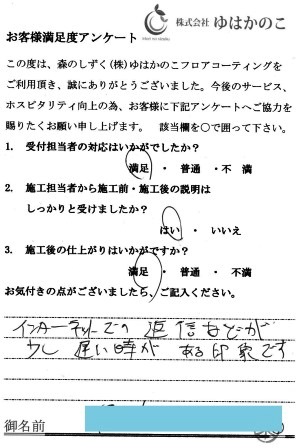 株式会社 ゆはかのこ
お客様満足度アンケート
この度は、森のしずく(株)ゆはかのこフロアコーティングを
ご利用頂き、誠にありがとうございました。今後のサービス、
ホスピタリティ向上の為、お客様に下記アンケートへご協力を
賜りたくお願い申し上げます。 該当欄を○で囲って下さい。
1. 受付担当者の対応はいかがでしたか?
満足 ・ 普通 ・ 不 満
2. 施工担当者から施工前・施工後の説明は
しっかりと受けましたか?
はい ・ いいえ
3. 施工後の仕上がりはいかがですか?
満足 ・ 普通 ・ 不満
お気付きの点がございましたら、ご記入ください。
インターネットでの 返信などが
少し 遅い時が ある印象です
御名前